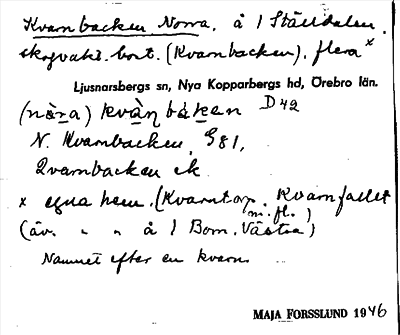 Kvarnbacken, Norra, å 1 Ställdalen.
skogvakt. bort. (Kvarnbacken), flera x
Ljusnarsbergs sn, Nya Kopparbergs hd, Örebro län.
(nò̱ra) kvà̱n bàken D 42
N. Kvarnbacken, G 81,
Qvarnbacken ek
x egna hem. (Kvarntorp. Kvarnfallet
m. fl. )
(äv. " " å 1 Bom. Västra)
Namnet efter en kvarn.
MAJA FORSSLUND 1946